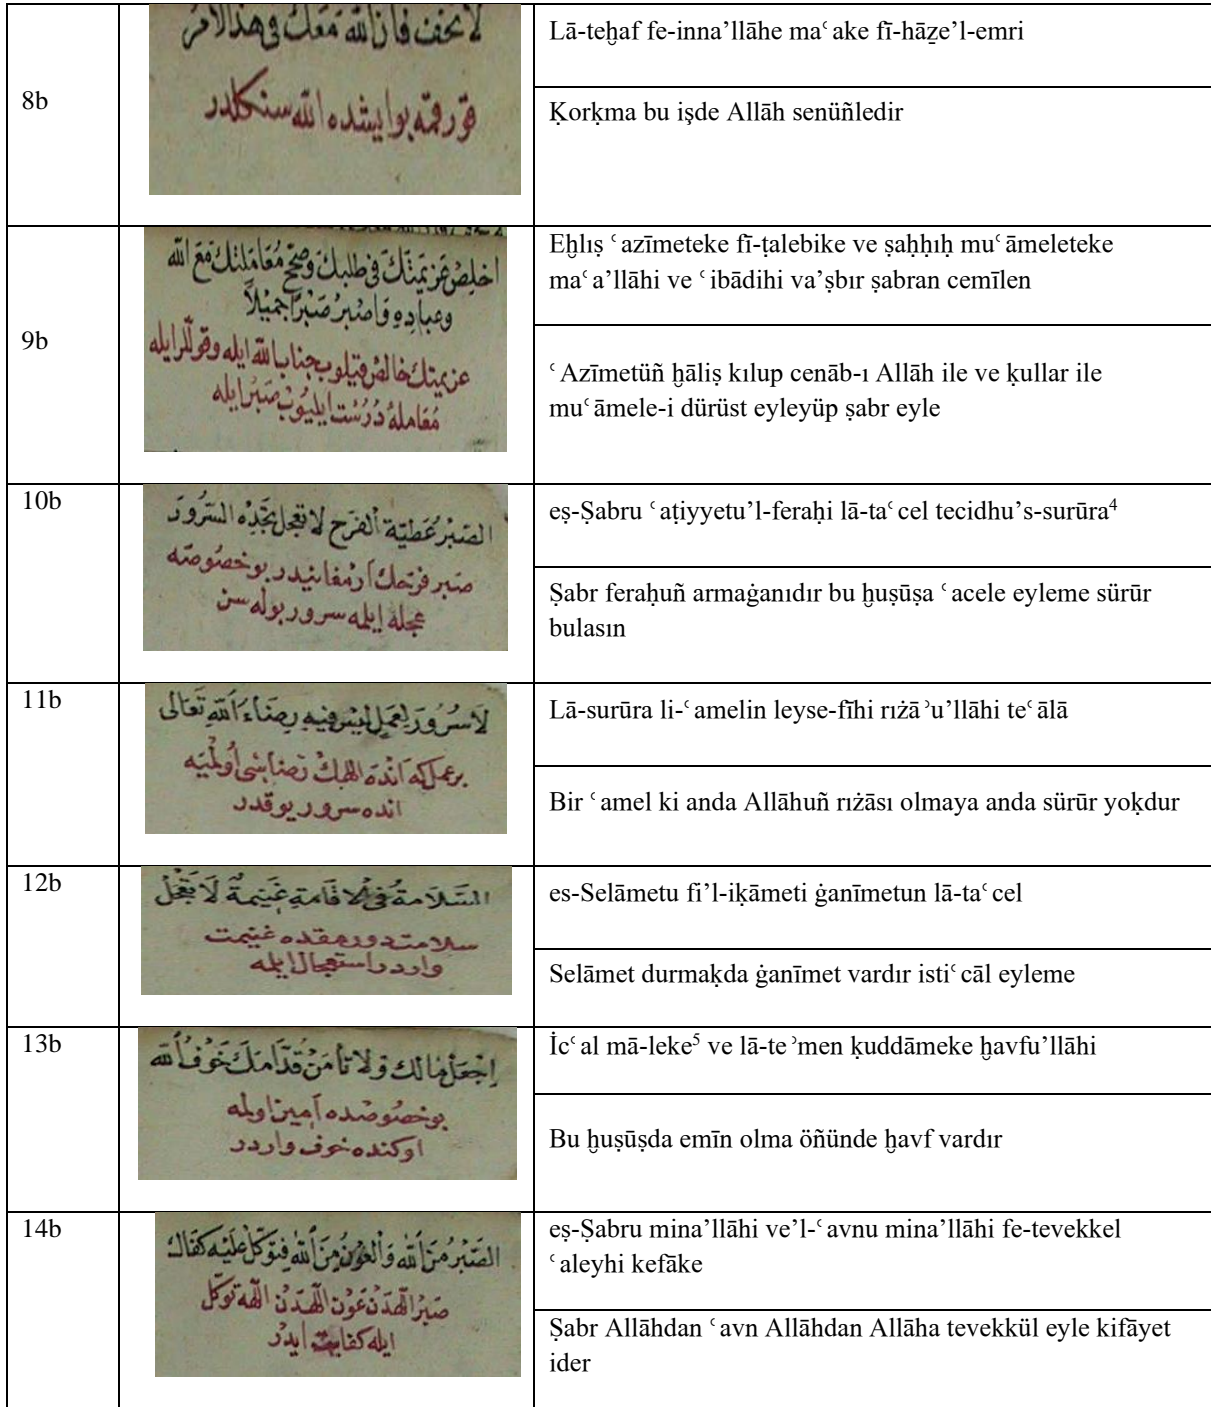 8b
لا تخف فان الله معك فى هذا الامر
قورقمه بو ايشده الله سنكلدر
Lā-teḫaf fe-inna’llāhe maʿake fī-hāẕe’l-emri
Ḳorḳma bu işde Allāh senüñledir
9b
اخلص عزيمتك فى طلبك وصحح معاملتك مع الله
وعباده واصبر صبرا جميلا
عزيمتك خالص قيلوب جناب الله ايله وقوللر ايله
معاملۀ درست ايليوب صبر ايله
Eḫlıṣ ʿazīmeteke fī-ṭalebike ve ṣaḥḥıḥ muʿāmeleteke
maʿa’llāhi ve ʿibādihi va’ṣbır ṣabran cemīlen
ʿAzīmetüñ ḫāliṣ kılup cenāb-ı Allāh ile ve ḳullar ile
muʿāmele-i dürüst eyleyüp ṣabr eyle
10b
الصبر عطية الفرح لا تعجل تجده السرور
صبر فرحك ارمغانيدر بو خصوصه
عجله ايلمه سرور بوله سن
eṣ-Ṣabru ʿaṭiyyetu’l-feraḥi lā-taʿcel tecidhu’s-surūra⁴
Ṣabr feraḥuñ armaġanıdır bu ḫuṣūṣa ʿacele eyleme sürūr
bulasın
11b
لا سرور لعمل ليس فيه رضاء الله تعالى
بر عمل كه انده اللهك رضاسى اولميه
انده سرور يوقدر
Lā-surūra li-ʿamelin leyse-fīhi rıżāʾu’llāhi teʿālā
Bir ʿamel ki anda Allāhuñ rıżāsı olmaya anda sürūr yoḳdur
12b
السلامة فى الاقامة غنيمة لا تعجل
سلامت دورمقده غنيمت
واردر استعجال ايلمه
es-Selāmetu fi’l-iḳāmeti ġanīmetun lā-taʿcel
Selāmet durmaḳda ġanīmet vardır istiʿcāl eyleme
13b
اجعل مالك ولا تأمن قدامك خوف الله
بو خصوصده امين اولمه
اوكنده خوف واردر
İcʿal mā-leke⁵ ve lā-teʾmen ḳuddāmeke ḫavfu’llāhi
Bu ḫuṣūṣda emīn olma öñünde ḫavf vardır
14b
الصبر من الله والعون من الله فتوكل عليه كفاك
صبر اللهدن عون اللهدن اللهه توكل
ايله كفايت ايدر
eṣ-Ṣabru mina’llāhi ve’l-ʿavnu mina’llāhi fe-tevekkel
ʿaleyhi kefāke
Ṣabr Allāhdan ʿavn Allāhdan Allāha tevekkül eyle kifāyet
ider